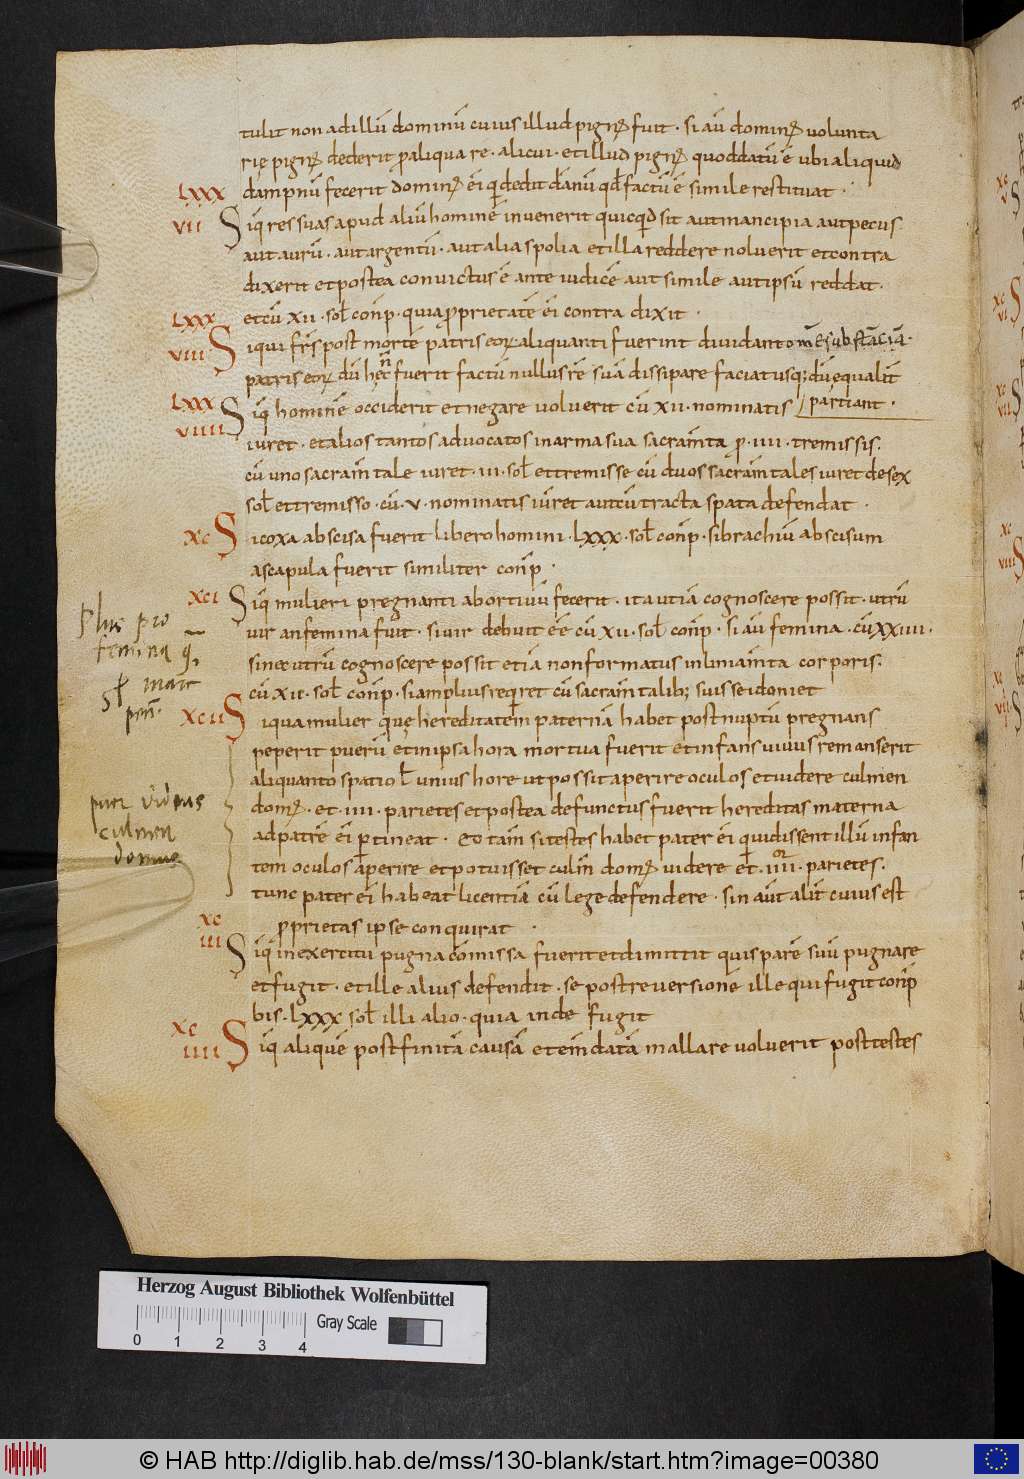 tulit non ad illū dominū cuius illud pignꝰ fuit · si aū dominꝰ volunta
rię pignꝰ dederit ꝑ aliqua re · alicui · et illud pignꝰ quod datū ē ubi aliquid
LXXX dampnū fecerit dominꝰ ei͞ qͥ dedit dānū qđ factū ē simile restituat ·
VII Siqͥ res suas apud aliū hominē invenerit quicqͥd sit aut mancipia aut pecus
aut aurū · aut argentū · aut alia spolia et illa reddere noluerit et contra
dixerit et postea convictus ē ante iudicē aut simile aut ipsū reddat ·
LXXX et cū XII · sol̄ con͞p · quia ꝓprietatē ei͞ contra dixit ·
VIII Siqui fr̄s post mortē patris eoꝝ aliquanti fuerint dividant omē substāciā ·
patris eoꝝ dū hęc n̄ fuerit factū nullus rē suā dissipare faciat usq; dū equalit̄
LXXX partiant ·
VIIII Siqͥ hominē occiderit et negare voluerit cū XII · nominatis
iuret · et alios tantos advocatos in arma sua sacram̄ta ꝓ · IIII · tremissis ·
cū uno sacram̄tale iuret · III · sol̄ et tremisse cū duos sacram̄tales iuret de sex
sol̄ et tremisso · cū · V · nominatis iuret aut cū tracta spata defendat ·
XC Si coxa abscisa fuerit libero homini · LXXX · sol̄ con͞p · si brachiū abscisum
a scapula fuerit similiter con͞p ·
XCI Siqͥ mulieri pregnanti abortivū fecerit · ita ut iā cognoscere possit · utrū
vir an femina fuit · si vir debuit eē cū XII · sol̄ con͞p · si aū femina · cū XXIIII ·
sin ex utrū cognoscere possit et iā non formatus in liniam̄ta corporis ·
cū XII · sol̄ con͞p · si amplius reqͥret cū sacram̄talib; suis se idoniet
plus pro
femina q̄
XCII Siqua mulier quę hereditatem paternā habet post nuptū pregnans
peperit puerū et in ipsa hora mortua fuerit et infans vivus remanserit
aliquanto spatio l̄ unius hore ut possit aperire oculos et videre culmen
domꝰ · et · IIII · parietes et postea defunctus fuerit hereditas materna
ad patrē ei͞ ꝑtineat · Et tam̄ si testes habet pater ei͞ qui vidissent illū infan
tem oculos aperire et potuisset culm̄ domꝰ videre et · IIII · parietes ·
tunc pater ei͞ habeat licentiā cū lege defendere · sin aut̄ alit̄ cuius est
puer videns
culmen
domus
ꝓprietas ipse conquirat ·
XCIII Siqͥ in exercitu pugna cōmissa fuerit et dimittit quis parē suū pugnare
et fugit · et ille alius defendit · se post reversionē ille qui fugit con͞p
bis · LXXX sol̄ illi alio · quia inde fugit
XCIIII Siqͥ aliquē post finitā causā et em̄datā mallare voluerit post testes
Herzog August Bibliothek Wolfenbüttel
Gray Scale
0 1 2 3 4
© HAB http://diglib.hab.de/mss/130-blank/start.htm?image=00380